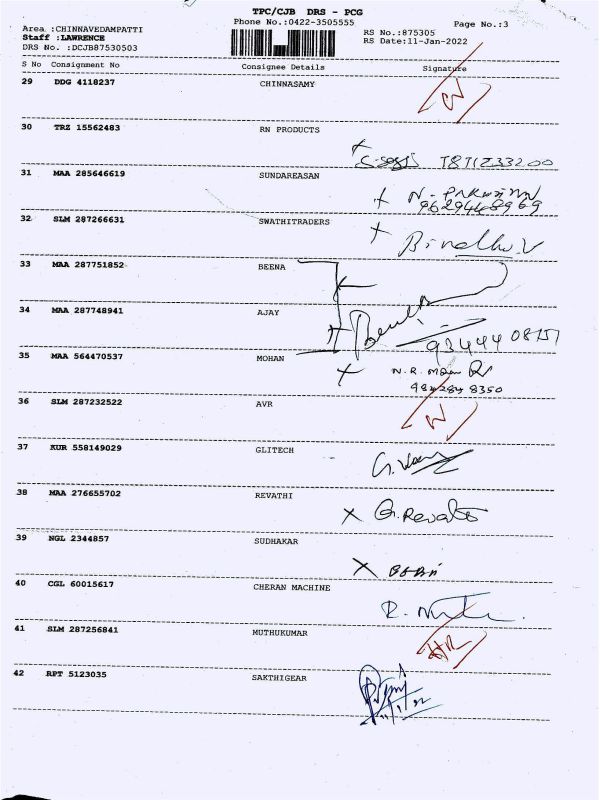 TPC/CJB DRS - PCG
Phone No.:0422-3505555 Page No.:3
Area :CHINNAVEDAMPATTI
Staff :LAWRENCE RS No.:875305
DRS No. :DCJB87530503 RS Date:11-Jan-2022
S No Consignment No Consignee Details Signature
29 DDG 4118237 CHINNASAMY
30 TRZ 15562483 RN PRODUCTS
31 MAA 285646619 SUNDAREASAN
9629448969
32 SLM 287266631 SWATHITRADERS
Bindhu.V
33 MAA 287751852 BEENA
34 MAA 287748941 AJAY
35 MAA 564470537 MOHAN
9842848350
36 SLM 287232522 AVR
37 KUR 558149029 GLITECH
38 MAA 276655702 REVATHI
G.Revathi
39 NGL 2344857 SUDHAKAR
40 CGL 60015617 CHERAN MACHINE
41 SLM 287256841 MUTHUKUMAR
42 RPT 5123035 SAKTHIGEAR